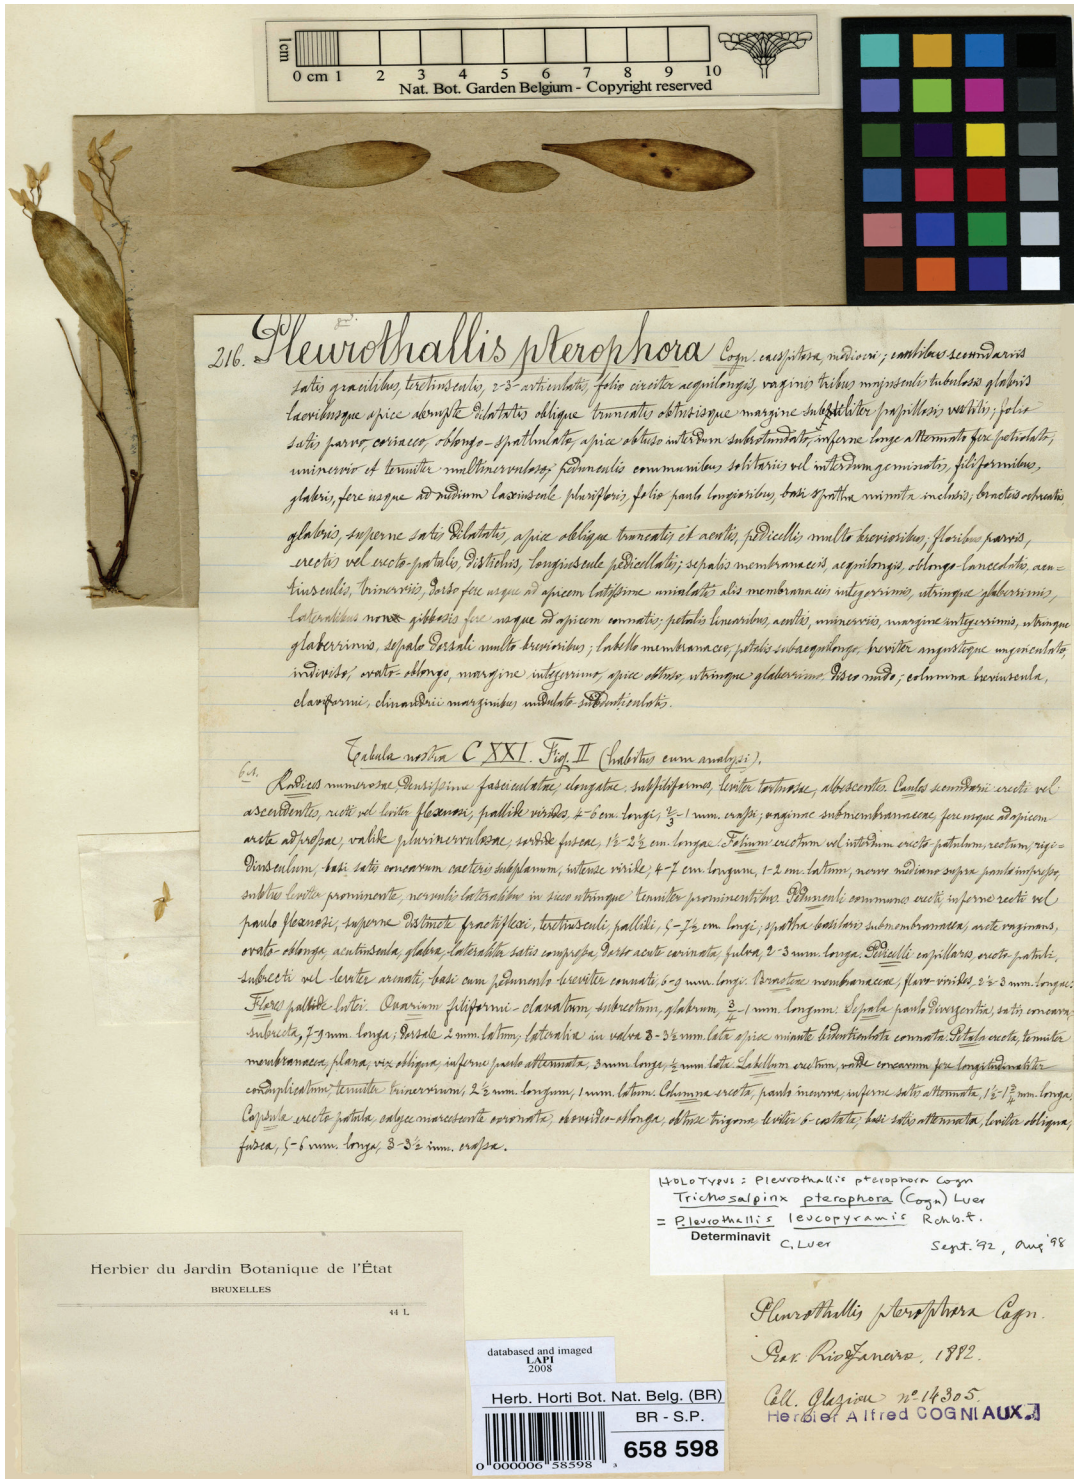 1cm
0 cm 1 2 3 4 5 6 7 8 9 10
Nat. Bot. Garden Belgium - Copyright reserved
216. Pleurothallis pterophora Cogn. caespitosa, mediocri; caulibus secundariis
satis gracilibus, teretiusculis, 2-3-articulatis, folio circiter aequilongis, vaginis tribus majusculis tubulosis glabris
laevibusque apice abrupte dilatatis oblique truncatis obtusisque margine subtiliter papillosis vestitis; folio
satis parvo, coriaceo, oblongo-spathulato, apice obtuso interdum subrotundato, inferne longe attenuato fere petiolato,
uninervio et tenuiter multinervuloso; pedunculis communibus solitariis vel interdum geminatis, filiformibus,
glabris, fere usque ad medium laxiuscule plurifloris, folio paulo longioribus, basi spatha minuta inclusis; bracteis ochreatis,
glabris, superne satis dilatatis, apice oblique truncatis et acutis, pedicellis multo brevioribus; floribus parvis,
erectis vel erecto-patulis, distichis, longiuscule pedicellatis; sepalis membranaceis, aequilongis, oblongo-lanceolatis, acu-
tiusculis, trinerviis, dorso fere usque ad apicem latissime unialatis alis membranaceis integerrimis, utrinque glaberrimis,
lateralibus non gibbosis fere usque ad apicem connatis; petalis linearibus, acutis, uninerviis, margine integerrimis, utrinque
glaberrimis, sepalo dorsali multo brevioribus; labello membranaceo, petalis subaequilongo, breviter angusteque unguiculato,
indiviso, ovato-oblongo, margine integerrimo, apice obtuso, utrinque glaberrimo, disco nudo; columna breviuscula,
claviformi, clinandrii marginibus undulato-subdenticulatis.
Tabula nostra CXXI. Fig. II (habitus cum analysi).
Radices numerosae, densissime fasciculatae, elongatae, subfiliformes, leviter tortuosae, albescentes. Caules secundarii erecti vel
ascendentes, recti vel leviter flexuosi, pallide virides, 4-6 cm. longi, 2/3-1 mm. crassi; vaginae submembranaceae, fere usque ad apicem
arcte adpressae, valide plurinervulosae, sordide fuscae, 1½-2½ cm. longae. Folium erectum vel interdum erecto-patulum, rectum, rigi-
diusculum, basi satis concavum caeteris subplanum, intense viride, 4-7 cm. longum, 1-2 cm. latum, nervo mediano supra paulo impresso,
subtus leviter prominente, nervulis lateralibus in sicco utrinque tenuiter prominentibus. Pedunculi communes erecti, inferne recti vel
paulo flexuosi, superne distincte fractiflexi, teretiusculi, pallidi, 5-7½ cm. longi; spatha basilaris submembranacea, arcte vaginans,
ovato-oblonga, acutiuscula, glabra, lateraliter satis compressa, dorso acute carinata, fulva, 2-3 mm. longa. Pedicelli capillares, erecto-patuli,
subrecti vel leviter arcuati, basi cum pedunculo breviter connati, 6-9 mm. longi. Bracteae membranaceae, flavo-virides, 2½-3 mm. longae.
Flores pallide lutei. Ovarium filiformi-clavatum subrectum, glabrum, 3/4-1 mm. longum. Sepala paulo divergentia, satis concava,
subrecta, 7-9 mm. longa; dorsale 2 mm. latum, lateralia in valva 3-3½ mm. lata apice minute bidenticulata connata. Petala erecta, tenuiter
membranacea, plana, vix obliqua, inferne paulo attenuata, 3 mm. longa, ½ mm. lata. Labellum erectum, valde concavum fere longitudinaliter
conduplicatum, tenuiter trinervium, 2½ mm. longum, 1 mm. latum. Columna erecta, paulo incurva, inferne satis attenuata, 1½-1¾ mm. longa.
Capsula erecto-patula, calyce marcescente coronata, obovideo-oblonga, obtuse trigona, leviter 6-costata, basi satis attenuata, leviter obliqua,
fusca, 5-6 mm. longa, 3-3½ mm. crassa.
HOLOTYPUS: Pleurothallis pterophora Cogn
Trichosalpinx pterophora (Cogn) Luer
= Pleurothallis leucopyramis Rchb.f.
Determinavit C. Luer Sept. '92, Aug '98
Herbier du Jardin Botanique de l'État
BRUXELLES
44 L
Pleurothallis pterophora Cogn.
Prov. Rio Janeiro, 1882.
Coll. Glaziou nº 14305
Herbier Alfred COGNIAUX.
databased and imaged
LAPI
2008
Herb. Horti Bot. Nat. Belg. (BR)
BR - S.P.
658 598
0 000006 58598